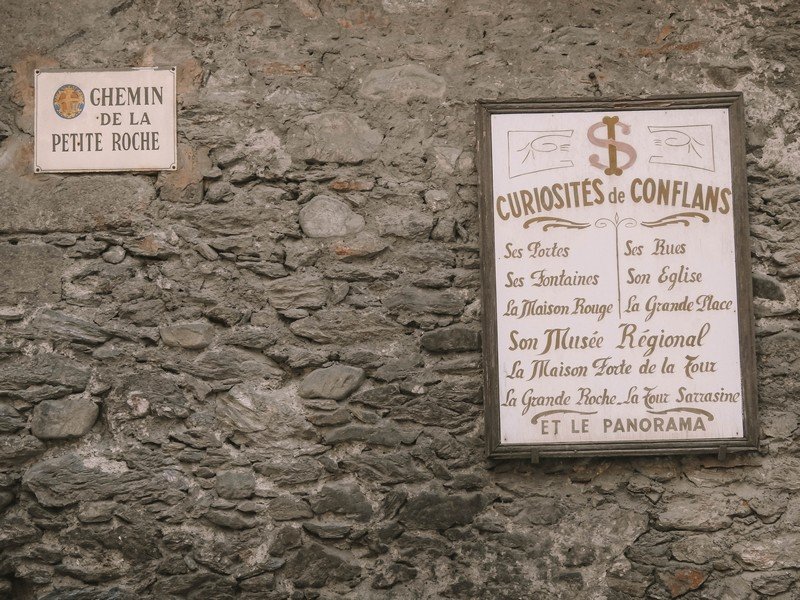 CHEMIN
DE LA
PETITE ROCHE
SI
CURIOSITÉS de CONFLANS
Ses Portes
Ses Fontaines
La Maison Rouge
Ses Rues
Son Eglise
La Grande Place
Son Musée Régional
La Maison Forte de la Tour
La Grande Roche_La Tour Sarrasine
ET LE PANORAMA